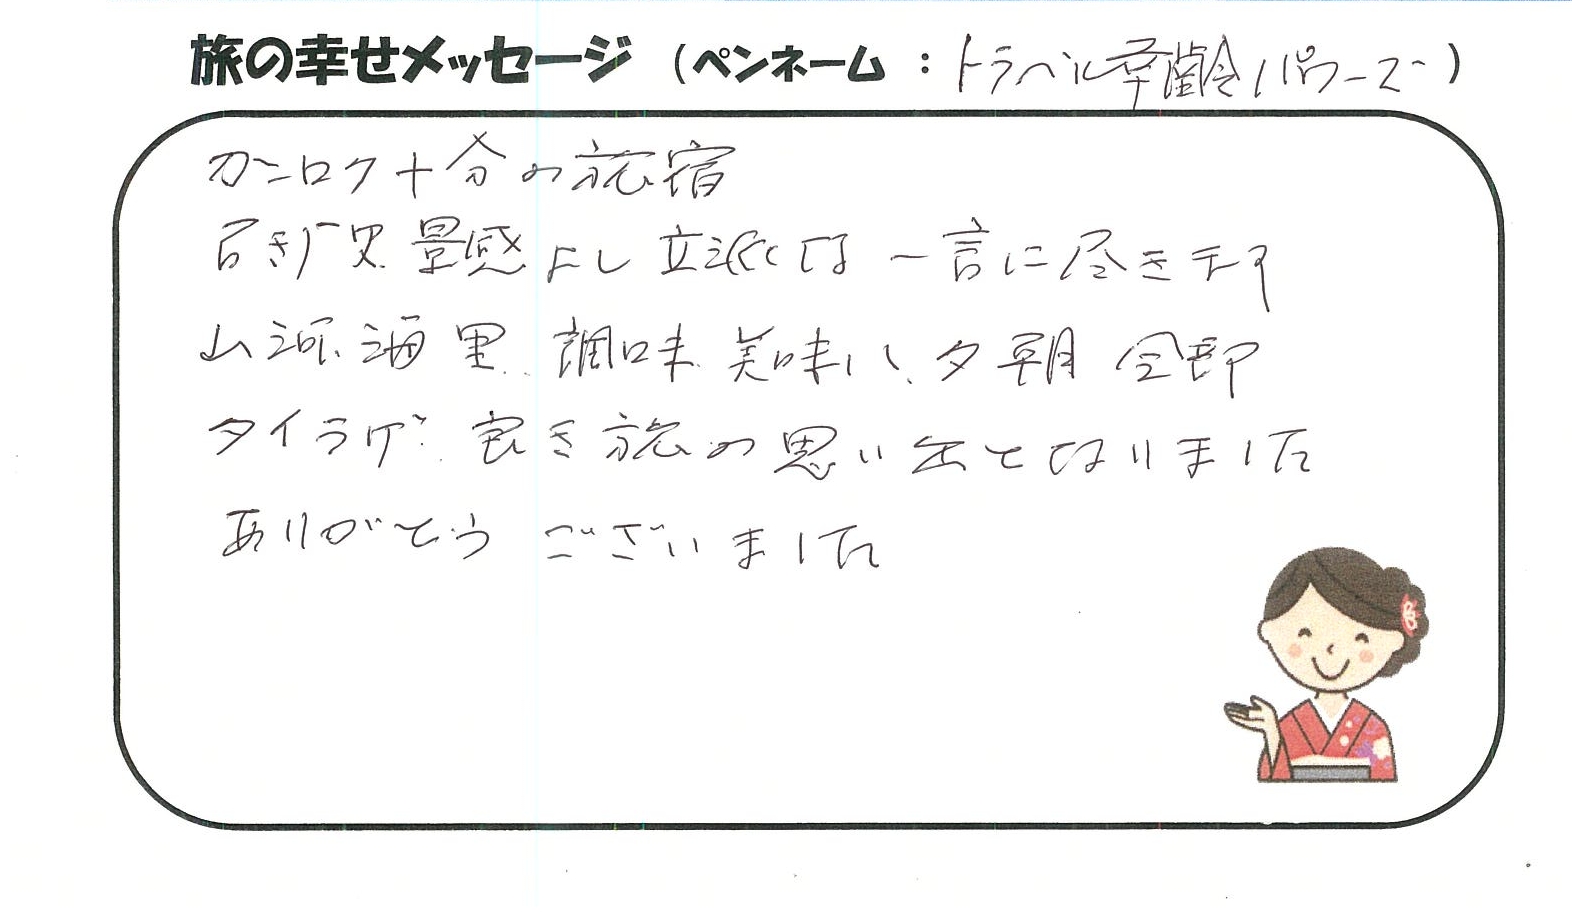 旅の幸せメッセージ (ペンネーム : トラベル卒齢パワーズー)
カンロク十分の旅宿
古き歴史 景感よし 立派は一言に尽きます
山河海里 調味 美味い、夕朝 全部
タイラゲ 良き旅の思い出となりました
ありがとうございました